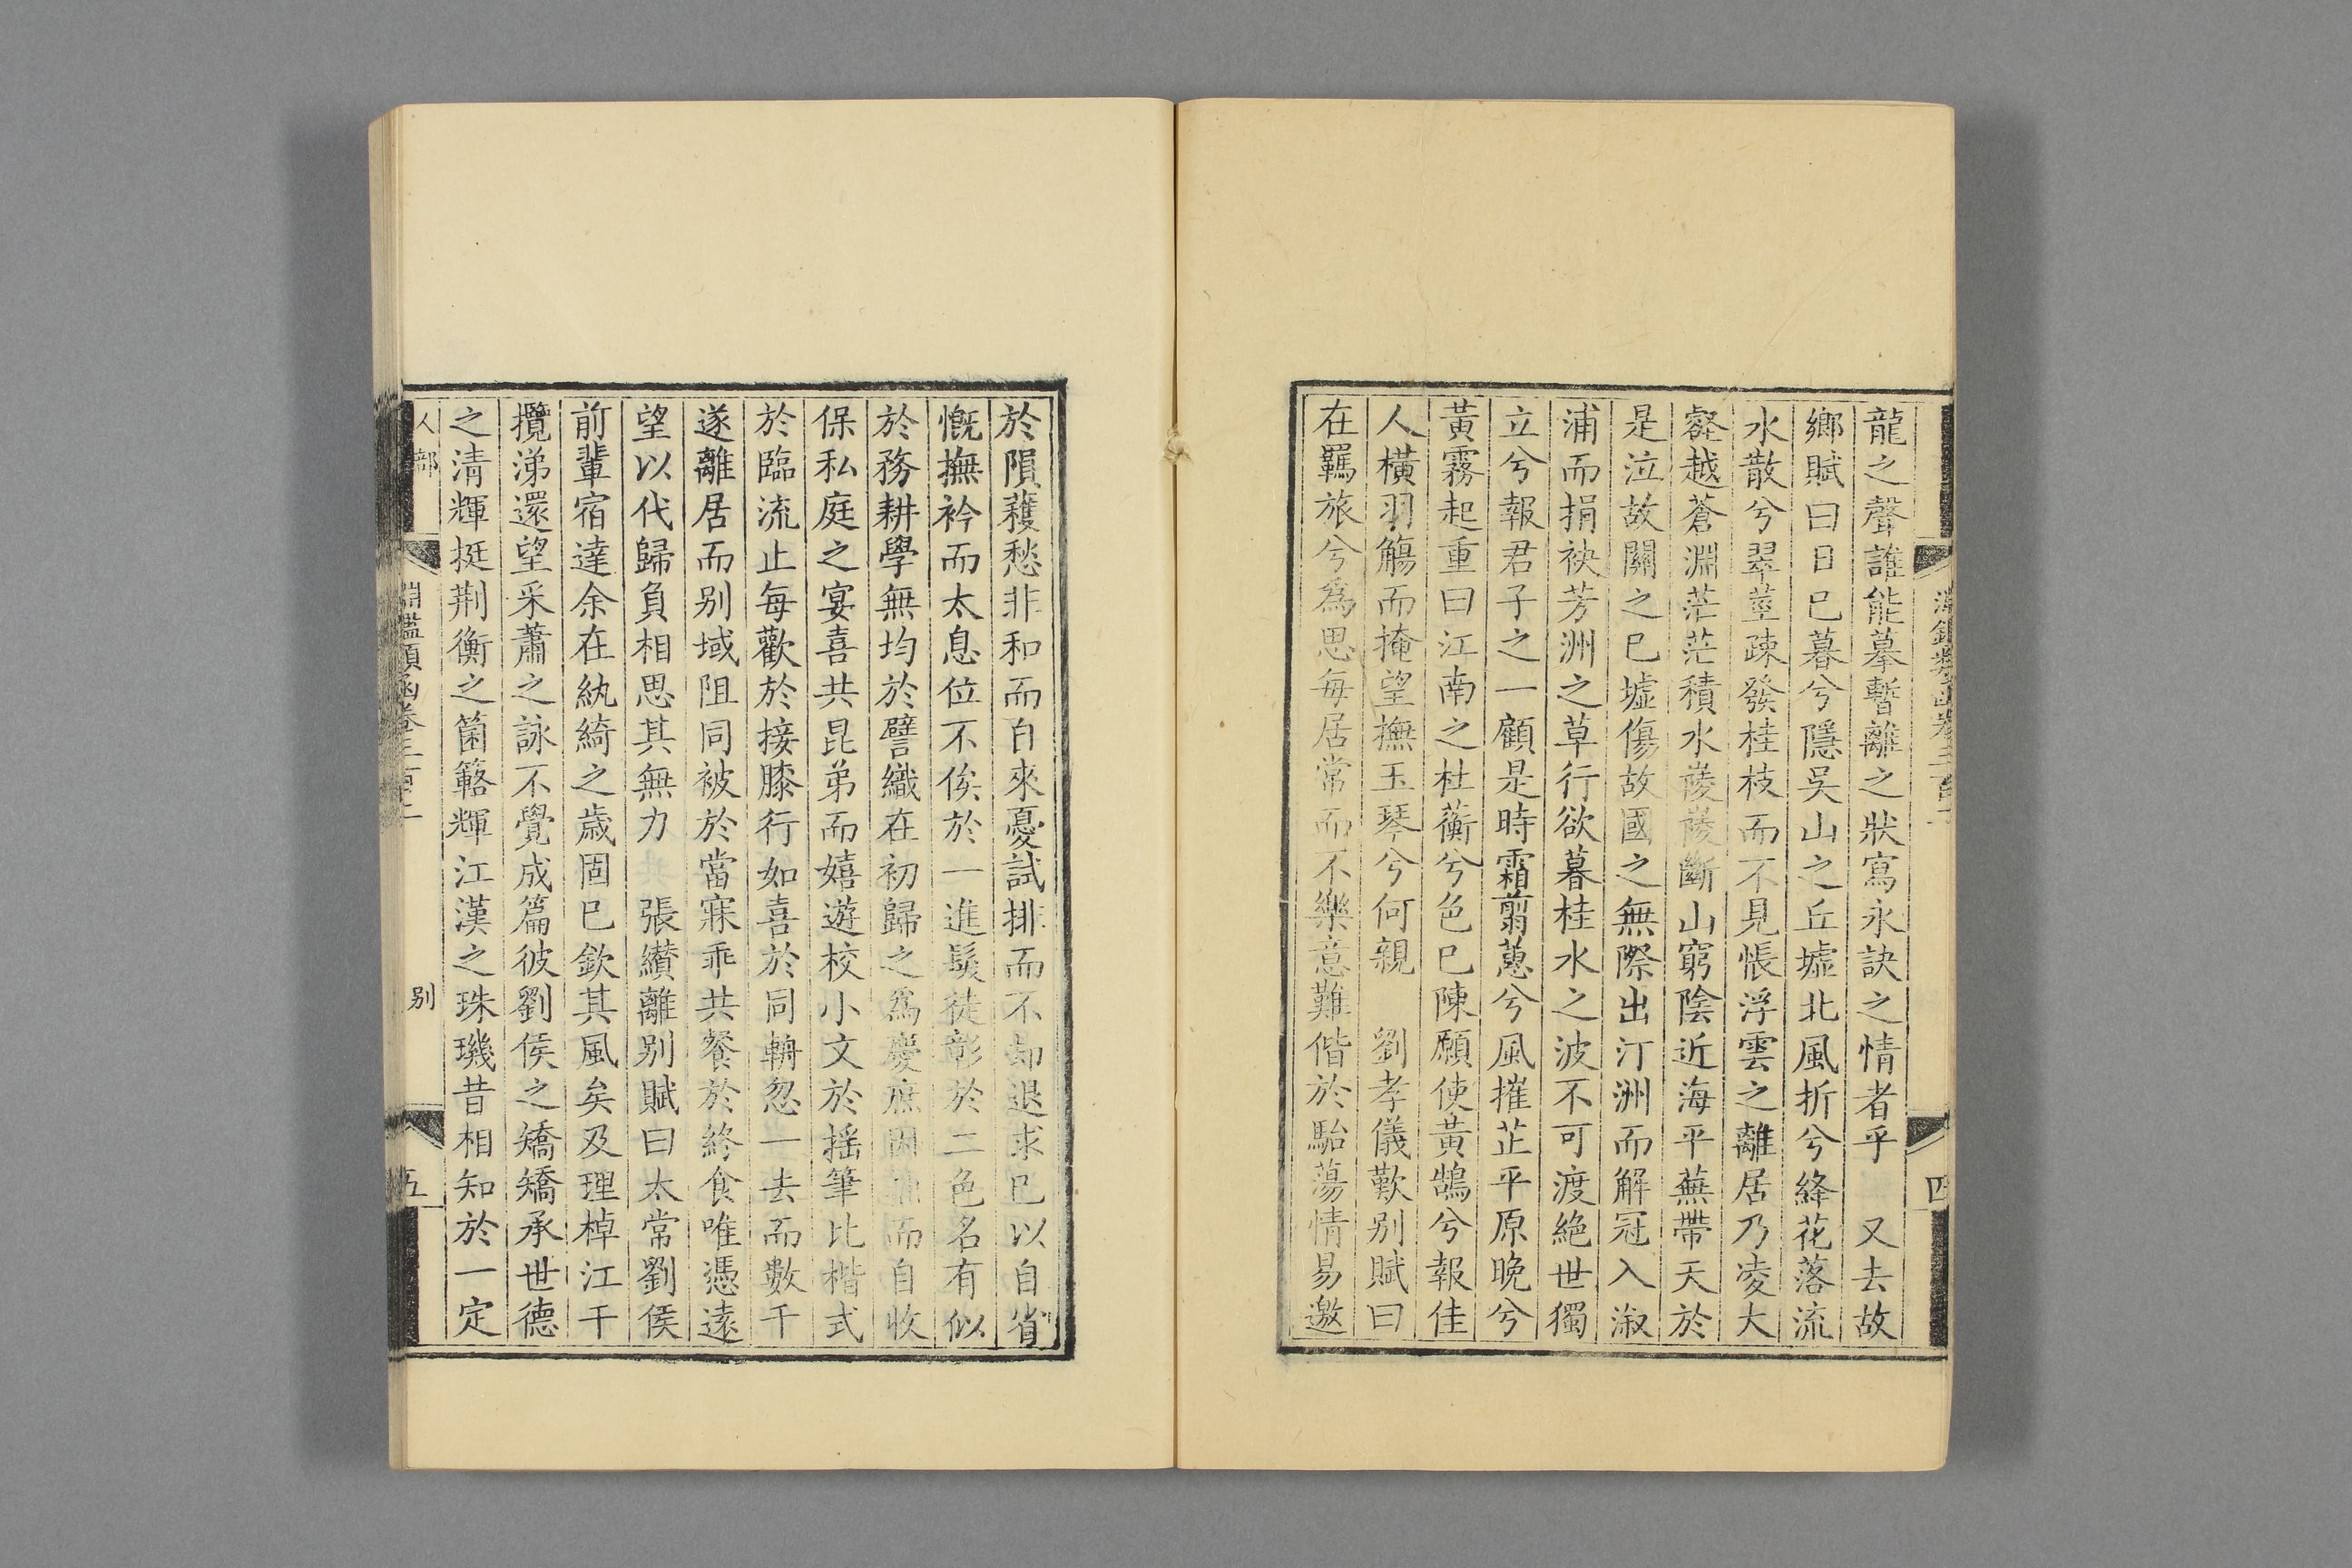 龍之聲誰能摹暫離之狀寫永訣之情者乎　又去故
鄉賦曰日已暮兮隱吳山之丘墟北風折兮絳花落流
水散兮翠莖疎發桂枝而不見悵浮雲之離居乃凌大
壑越蒼淵茫茫積水蔆蔆斷山窮陰近海平蕪帶天於
是泣故關之已墟傷故國之無際出汀洲而解冠入溆
浦而捐袂芳洲之草行欲暮桂水之波不可渡絕世獨
立兮報君子之一顧是時霜翦蕙兮風摧芷平原晚兮
黃霧起重曰江南之杜蘅兮色已陳願使黃鵠兮報佳
人橫羽觴而掩望撫玉琴兮何親　劉孝儀歎别賦曰
在羈旅兮為思每居常而不樂意難偕於駘蕩情易邀
於隕蘀愁非和而自來憂試排而不却退求已以自省
慨撫衿而太息位不俟於一進鬢徒彰於二色名有似
於務耕學無均於譬織在初歸之為慶庶閑而自收
保私庭之宴喜共昆弟而嬉遊校小文於搖筆比楷式
於臨流止每歡於接膝行如喜於同輈忽一去而數千
遂離居而别域阻同被於當寐乖共餐於終食唯憑遠
望以代歸負相思其無力　張纘離别賦曰太常劉侯
前輩宿達余在紈綺之歲固已欽其風矣及理棹江干
攬涕還望采蕭之詠不覺成篇彼劉侯之矯矯承世德
之清輝挺荆衡之箘簵輝江漢之珠璣昔相知於一定
人部
淵鑑類函卷三百
别
五
四